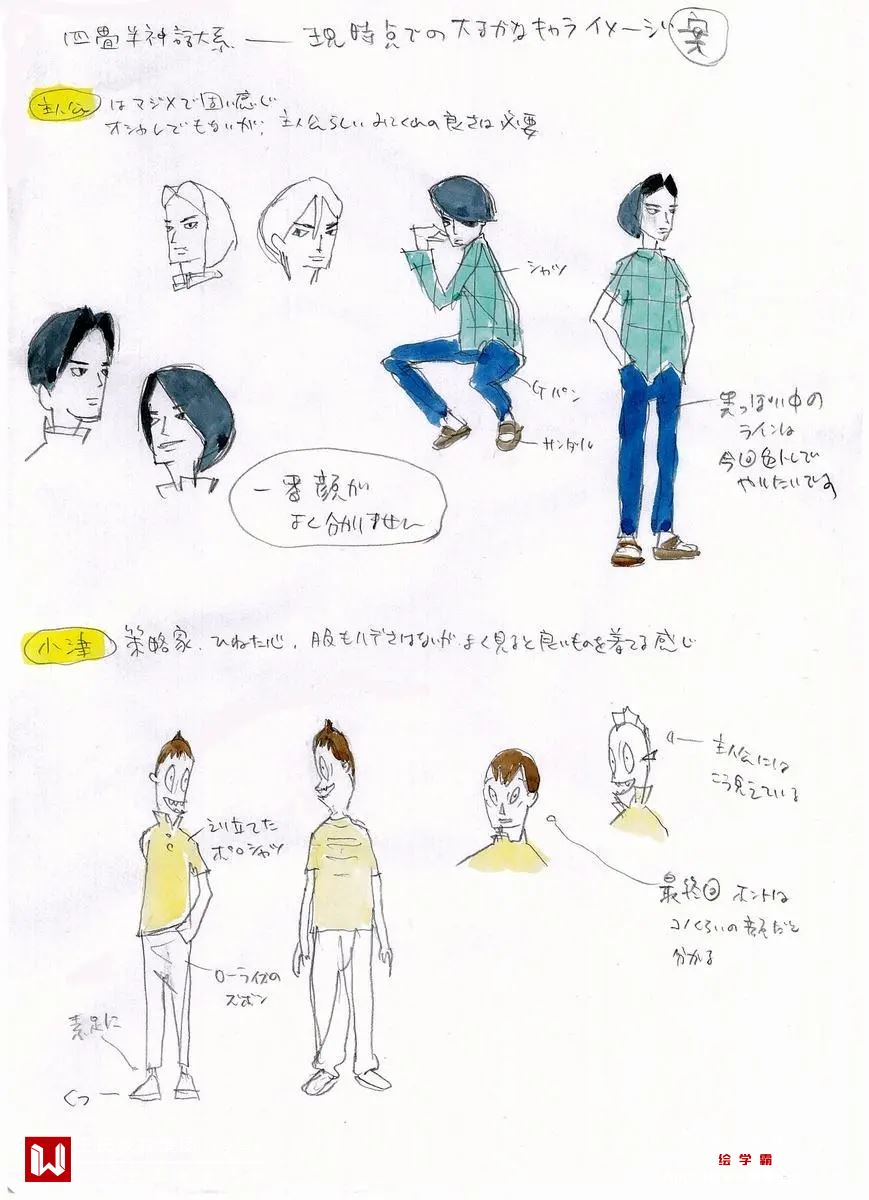 四畳半神話大系 — 現時点での大まかなキャライメージ 案
主人公 はマジメで固い感じ
オシャレでもないが、主人公らしいみてくれの良さは必要
シャツ
Gパン
サンダル
黒っぽい中の
ラインは
今回色トレで
やりたいです
一番顔が
よく分かりません
小津 策略家、ひねた心、服もハデさはないがよく見ると良いものを着てる感じ
主人公には
こう見えている
えり立てた
ポロシャツ
最終回 ホントは
コノくらいの顔だと
分かる
ローライズの
ズボン
素足に
くつ
绘学霸